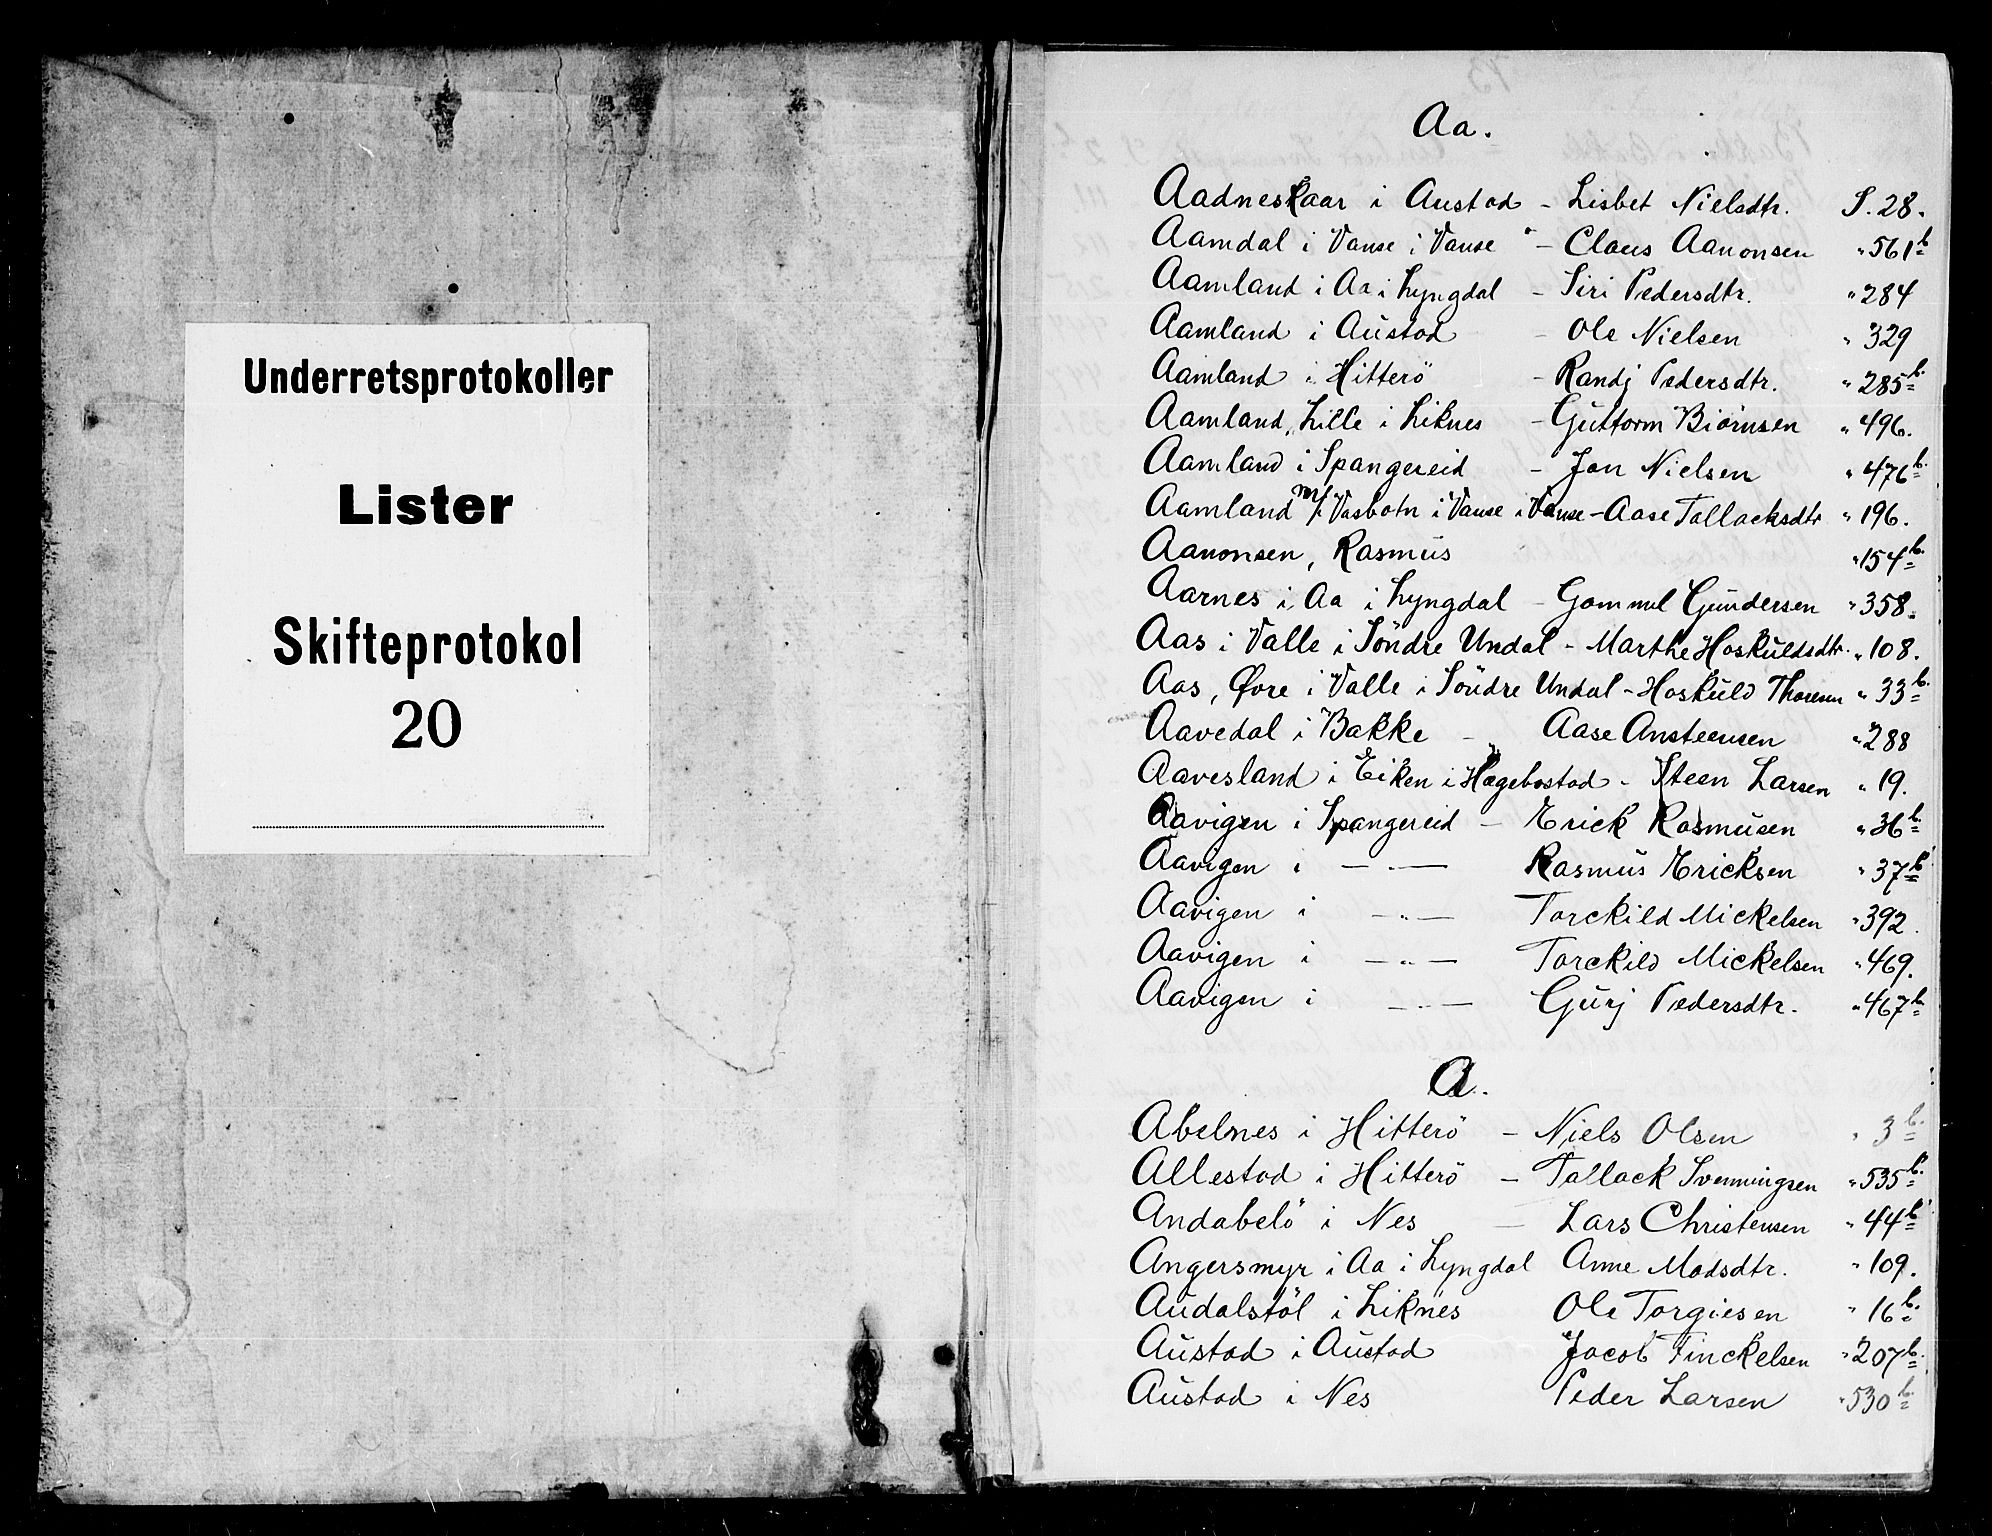 Underretsprotokoller
Lister
Skifteprotokol
20
Aa.
Aadneskaar i Austad - Lisbet Nielsdtr. S. 28.
Aamdal i Vanse i Vanse " - Claus Aanonsen " 561 b
Aamland i Aa i Lyngdal - Siri Pedersdtr. " 284
Aamland i Austad - Ole Nielsen " 329
Aamland i Hitterö - Randj Pedersdtr. " 285 b.
Aamland, Lille i Liknes - Guttorm Biörnsen " 496.
Aamland i Spangereid - Jon Nielsen " 476 b.
Aamland m/ Vasbotn i Vanse i Vanse - Aase Tallacksdtr " 196.
Aanonsen, Rasmus " 154 b.
Aarnes i Aa i Lyngdal - Gommel Gundersen " 358.
Aas i Valle i Söndre Undal - Marthe Hoskuldsdtr. " 108.
Aas, Øvre i Valle i Söndre Undal - Hoskuld Thoresen " 33 b.
Aavedal i Bakke - Aase Ansteensen " 288
Aavesland i Eiken i Hægebostad - Steen Larsen " 19.
Aavigen i Spangereid - Erick Rasmusen " 36 b.
Aavigen i — " — Rasmus Ericksen " 37 b.
Aavigen i — " — Torckild Mickelsen " 392.
Aavigen i — " — Torckild Mickelsen " 469.
Aavigen i — " — Gurj Pedersdtr. " 467 b.
A.
Abelnes i Hitterö - Niels Olsen " 3 b.
Allestad i Hitterö - Tallack Svenningsen " 535 b.
Andabelö i Nes - Lars Christensen " 44 b.
Angersmyr i Aa i Lyngdal Anne Madsdtr. " 109.
Audalstöl i Liknes Ole Torgiesen " 16 b.
Austad i Austad Jacob Finckelsen " 207 b.
Austad i Nes Peder Larsen " 530 b.